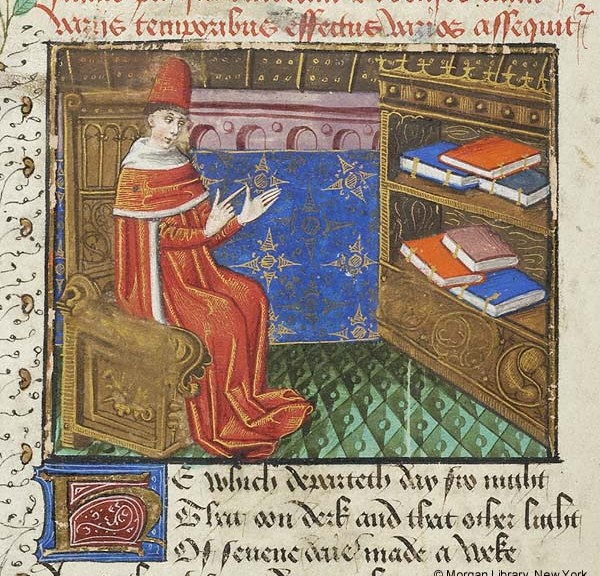 variis temporibus effectus varios assequit
He which departeth day fro nyght
That oon derk and that other lycht
Of sevene daies made a weke
© Morgan Library, New York